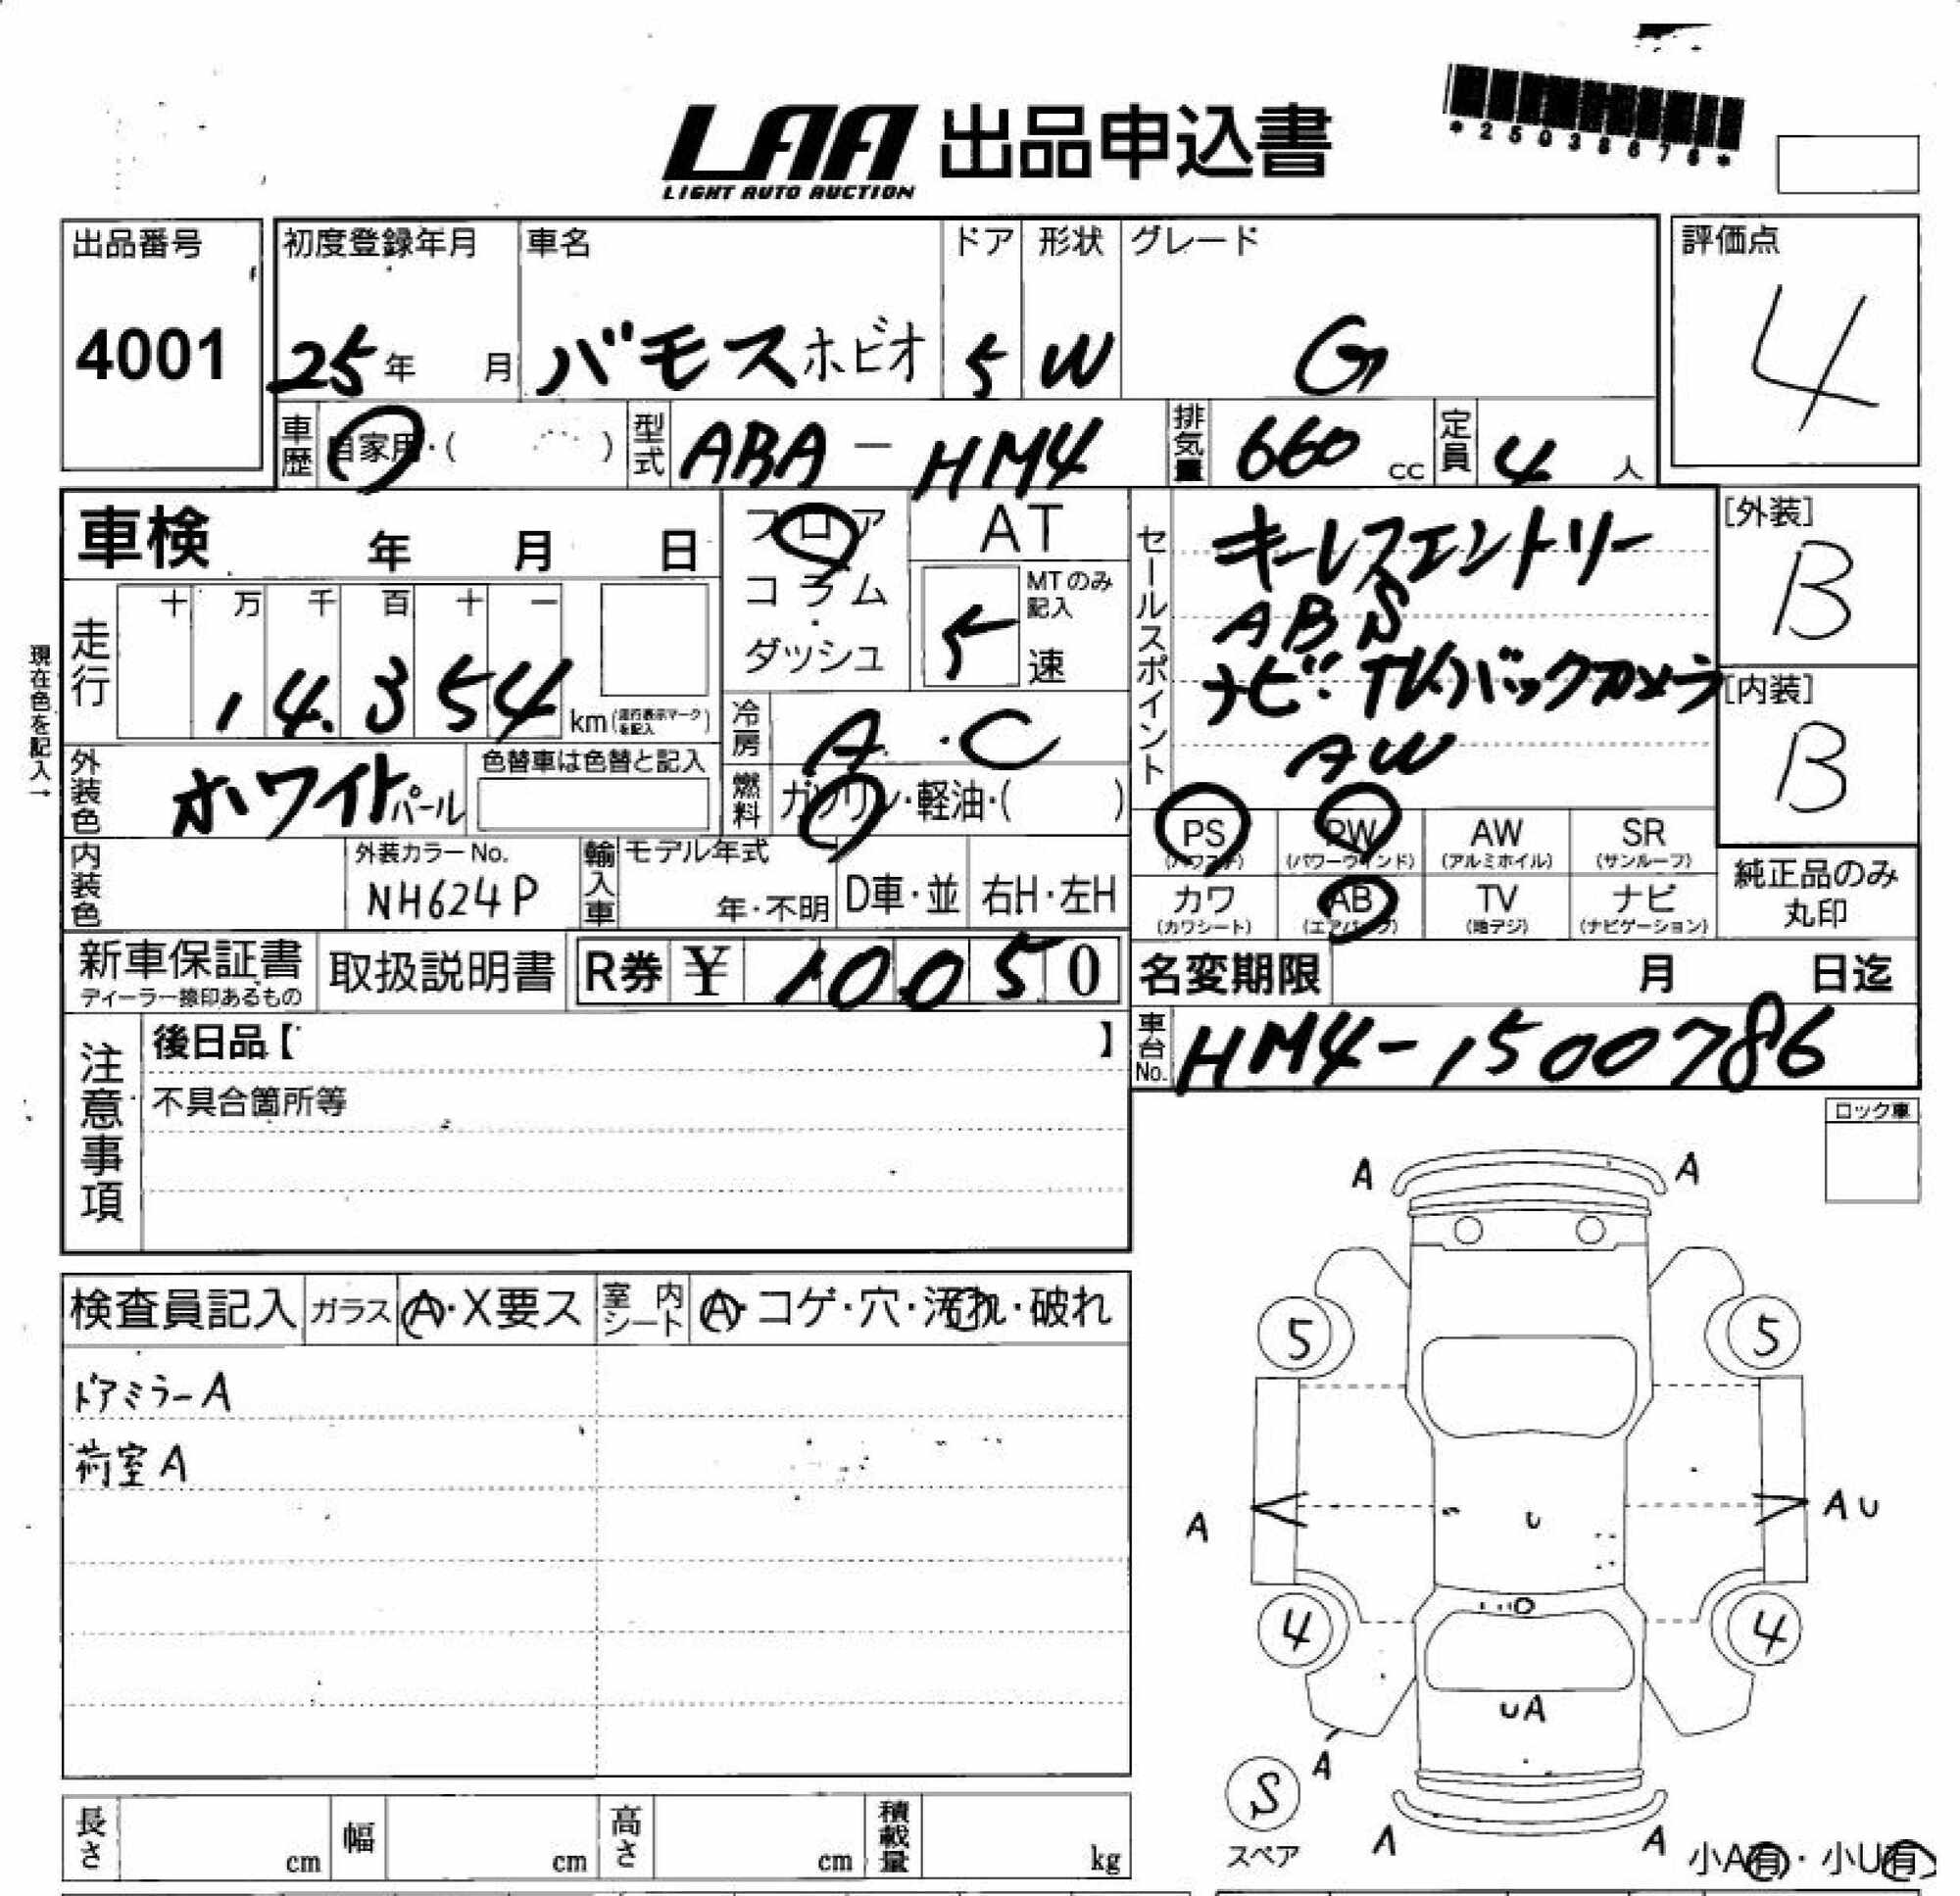 LAA 出品申込書
LIGHT AUTO AUCTION
*25038678*
出品番号 初度登録年月 車名 ドア 形状 グレード 評価点
4001 25年 月 バモスホビオ 5 W G 4
車歴 自家用・( ) 型式 ABA-HM4 排気量 660 cc 定員 4 人
車検 年 月 日
フロア AT
コラム
ダッシュ
MTのみ記入
5 速
セールスポイント
キーレスエントリー
ABS
ナビ・TV バックカメラ
AW
[外装]
B
[内装]
B
現在色を記入→
走行 十 万 千 百 十 一
14.354 km (走行表示マークを記入)
冷房 A・C
外装色 ホワイトパール 色替車は色替と記入
燃料 ガソリン・軽油・( )
PS (パワステ) PW (パワーウインド) AW (アルミホイル) SR (サンルーフ)
カワ (カワシート) AB (エアバッグ) TV (地デジ) ナビ (ナビゲーション)
純正品のみ
丸印
内装色 外装カラーNo. NH624P 輸入車 モデル年式 年・不明 D車・並 右H・左H
新車保証書 ディーラー捺印あるもの 取扱説明書 R券 ¥ 10050
名変期限 月 日迄
車台No. HM4-1500786
注意事項
後日品【 】
不具合箇所等
ロック車
検査員記入 ガラス A・X要ス 室内シート A・コゲ・穴・汚れ・破れ
ドアミラーA
荷室A
A A
5 5
A U AU
4 4
UA
A
S
スペア
A A
小A有・小U有
長さ cm 幅 cm 高さ cm 積載量 kg